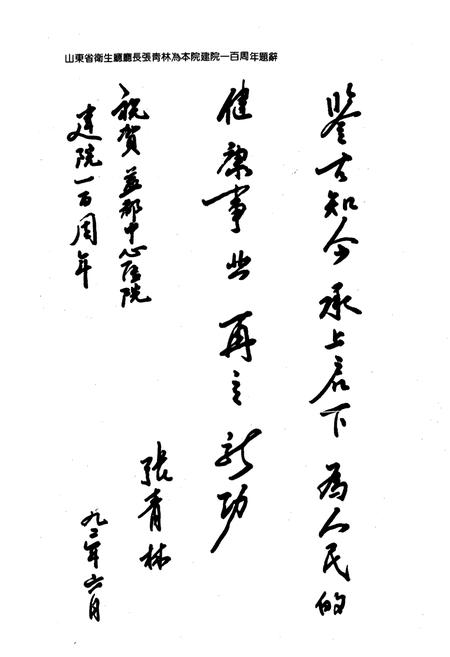 山東省衛生廳廳長張青林為本院建院一百周年題辭
鉴古知今 承上启下 為人民的
健康事业 再立新功
祝賀益都中心医院
建院一百周年
張青林
九二年六月